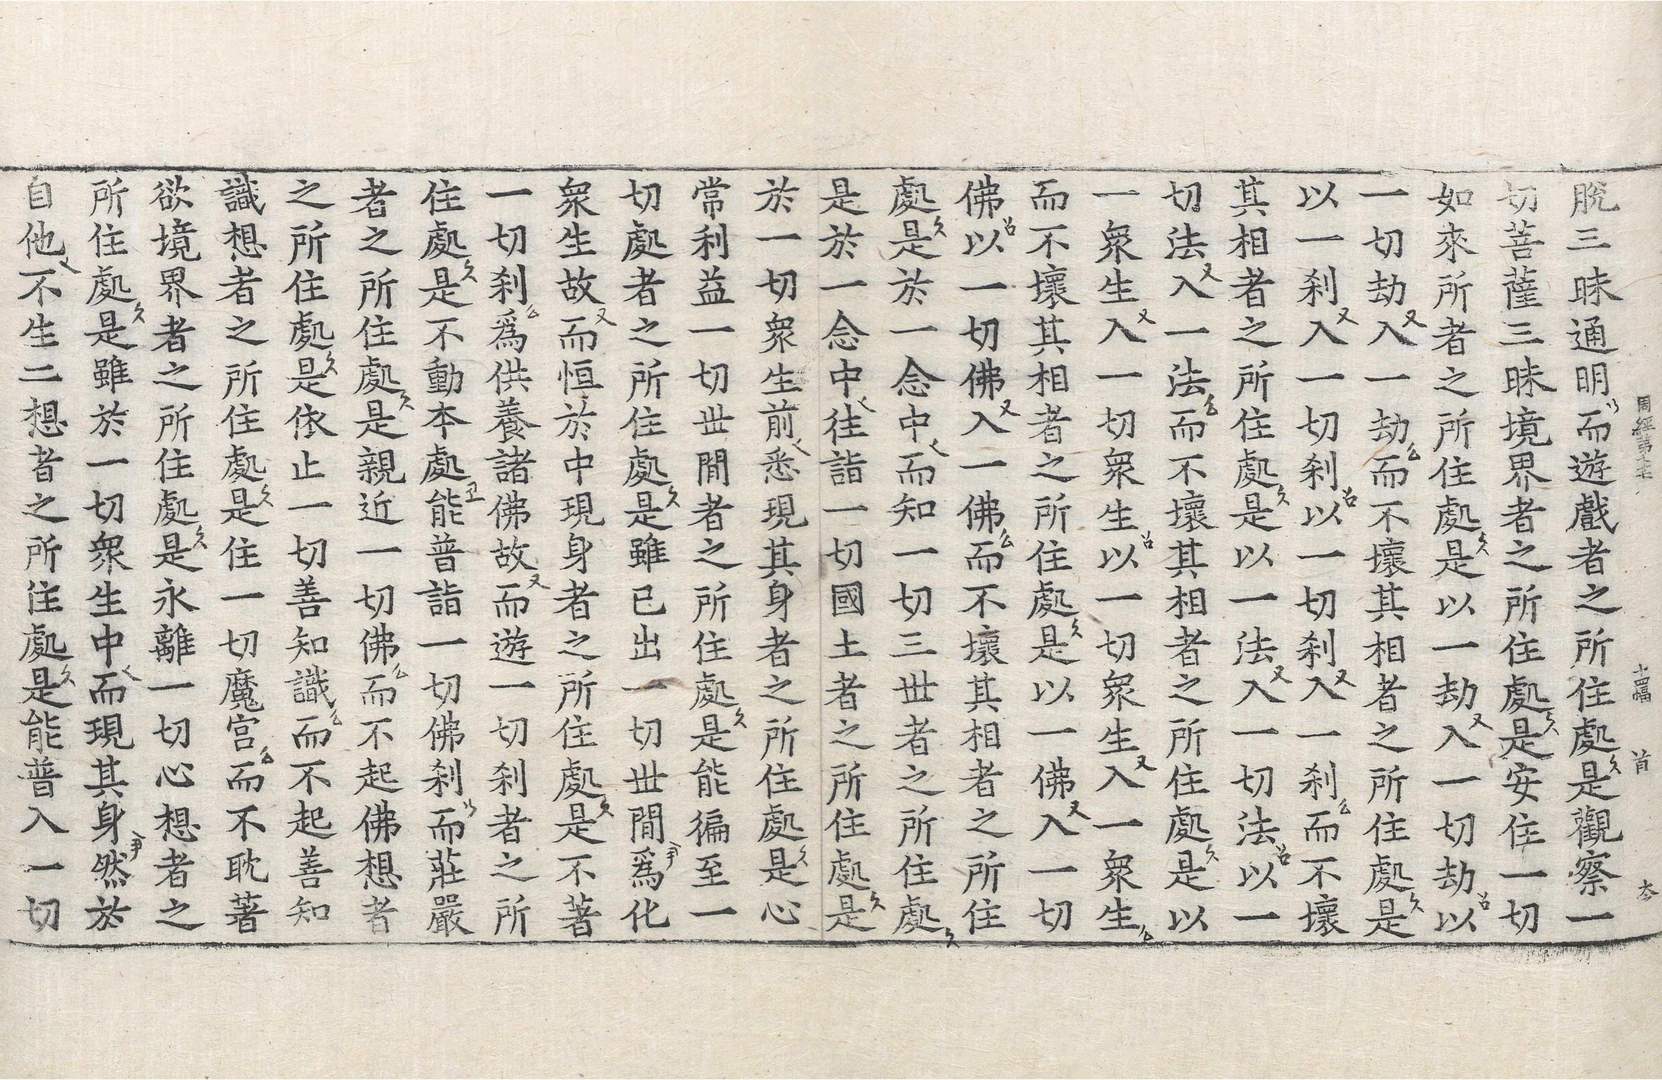 周經第七十七 十四幅 首 夲
脫三昧通明而遊戲者之所住處是觀察一
切菩薩三昧境界者之所住處是安住一切
如來所者之所住處是以一劫入一切劫以
一切劫入一劫而不壞其相者之所住處是
以一刹入一切刹以一切刹入一刹而不壞
其相者之所住處是以一法入一切法以一
切法入一法而不壞其相者之所住處是以
一衆生入一切衆生以一切衆生入一衆生
而不壞其相者之所住處是以一佛入一切
佛以一切佛入一佛而不壞其相者之所住
處是於一念中而知一切三世者之所住處
是於一念中往詣一切國土者之所住處是
於一切衆生前悉現其身者之所住處是心
常利益一切世間者之所住處是能徧至一
切處者之所住處是雖已出一切世間爲化
衆生故而恒於中現身者之所住處是不著
一切刹爲供養諸佛故而遊一切刹者之所
住處是不動本處能普詣一切佛刹而莊嚴
者之所住處是親近一切佛而不起佛想者
之所住處是依止一切善知識而不起善知
識想者之所住處是住一切魔宮而不耽著
欲境界者之所住處是永離一切心想者之
所住處是雖於一切衆生中而現其身然於
自他不生二想者之所住處是能普入一切